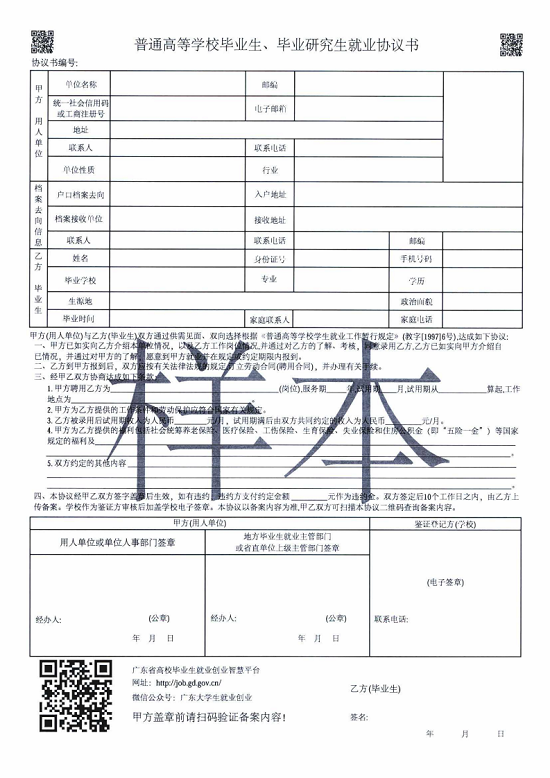 普通高等学校毕业生、毕业研究生就业协议书
协议书编号:
甲方 用人单位
单位名称
邮编
统一社会信用码
或工商注册号
电子邮箱
地址
联系人
联系电话
单位性质
行业
档案去向信息
户口档案去向
入户地址
档案接收单位
接收地址
联系人
联系电话
邮编
乙方 毕业生
姓名
身份证号
手机号码
毕业学校
专业
学历
生源地
政治面貌
毕业时间
家庭联系人
家庭电话
甲方(用人单位)与乙方(毕业生)双方通过供需见面、双向选择根据《普通高等学校学生就业工作暂行规定》(教字[1997]6号),达成如下协议:
一、甲方已如实向乙方介绍本单位情况,以及乙方工作岗位情况,并通过对乙方的了解、考核,同意录用乙方,乙方已如实向甲方介绍自
己情况,并通过对甲方的了解,愿意到甲方就业并在规定或约定期限内报到。
二、乙方到甲方报到后,双方应按有关法律法规的规定订立劳动合同(聘用合同),并办理有关手续。
三、经甲乙双方协商达成如下条款:
1.甲方聘用乙方为 (岗位),服务期 年,试用期 月,试用期从 算起,工作
地点为 。
2.甲方为乙方提供的工作条件和劳动保护应符合国家有关规定。
3.乙方被录用后试用期收入为人民币 元/月。试用期满后由双方共同约定的收入为人民币 元/月。
4.甲方为乙方提供的福利包括社会统筹养老保险、医疗保险、工伤保险、生育保险、失业保险和住房公积金(即“五险一金”)等国家
规定的福利及
。
5.双方约定的其他内容
。
四、本协议经甲乙双方签字盖章后生效,如有违约,违约方支付约定金额 元作为违约金。双方签定后10个工作日之内,由乙方上
传备案。学校作为签证方审核后加盖学校电子签章。本协议以备案内容为准,甲乙双方可扫描本协议二维码查询备案内容。
样本
甲方(用人单位)
鉴证登记方(学校)
用人单位或单位人事部门签章
地方毕业生就业主管部门
或省直单位上级主管部门签章
(电子签章)
经办人: (公章)
年 月 日
经办人: (公章)
年 月 日
联系电话:
广东省高校毕业生就业创业智慧平台
网址: http://job.gd.gov.cn/
微信公众号: 广东大学生就业创业
甲方盖章前请扫码验证备案内容!
乙方(毕业生)
签名:
年 月 日